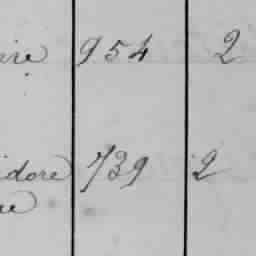 ire 954 2
idore 739 2